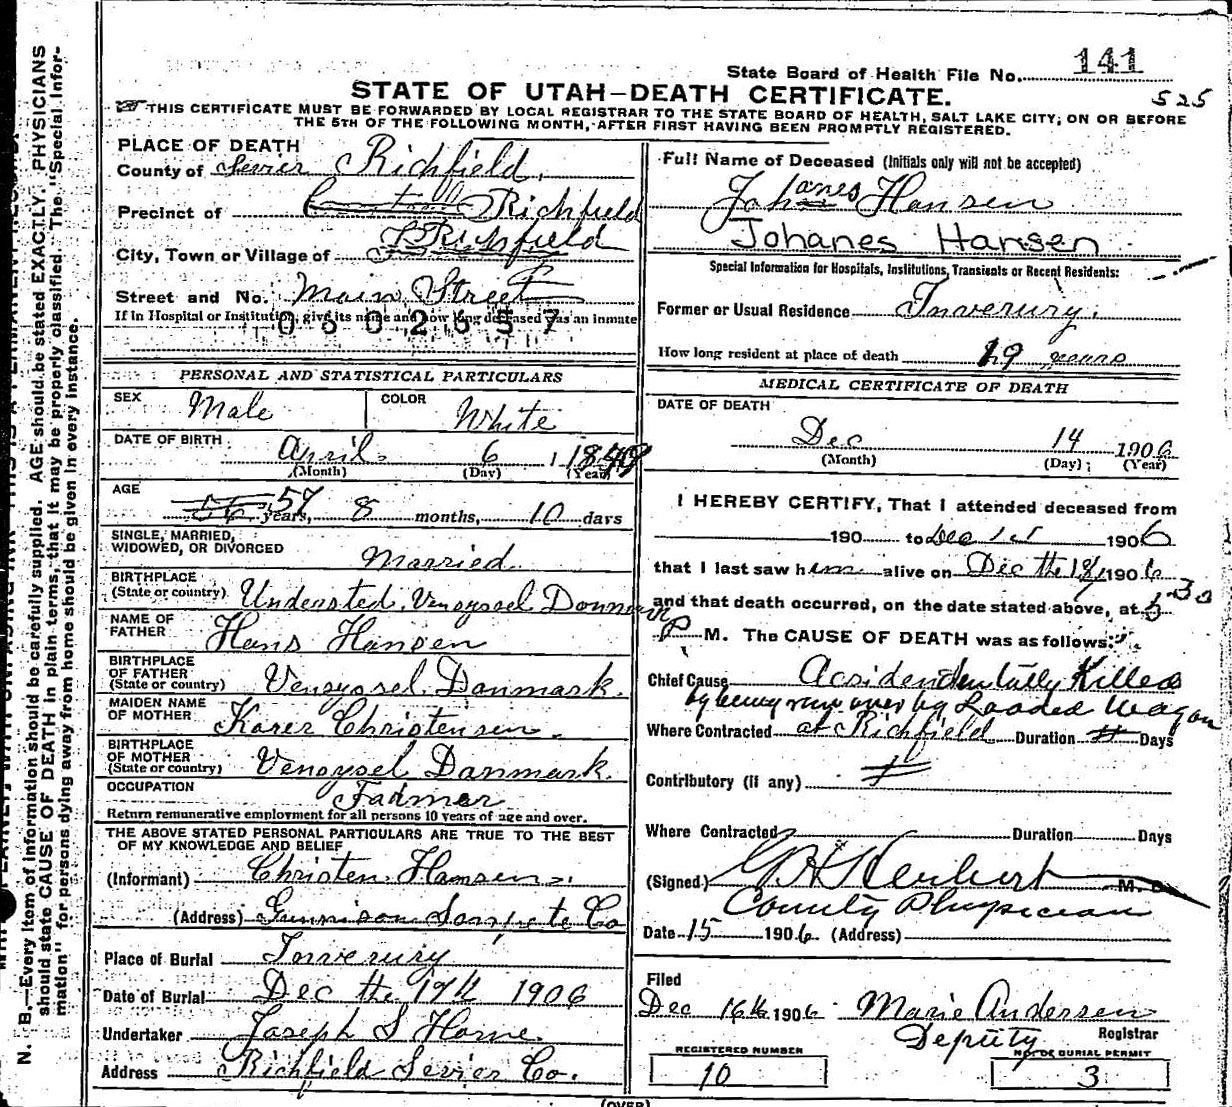 State Board of Health File No. 141
STATE OF UTAH—DEATH CERTIFICATE.
525
THIS CERTIFICATE MUST BE FORWARDED BY LOCAL REGISTRAR TO THE STATE BOARD OF HEALTH, SALT LAKE CITY, ON OR BEFORE
THE 5TH OF THE FOLLOWING MONTH, AFTER FIRST HAVING BEEN PROMPTLY REGISTERED.
PLACE OF DEATH
County of Sevier Richfield.
Precinct of Richfield
City, Town or Village of Richfield
Street and No. Main Street
If in Hospital or Institution, give its name and how long deceased was an inmate
0602557
PERSONAL AND STATISTICAL PARTICULARS
SEX Male COLOR White
DATE OF BIRTH April 6 1849
(Month) (Day) (Year)
AGE
56 57 years, 8 months, 10 days
SINGLE, MARRIED,
WIDOWED, OR DIVORCED Married
BIRTHPLACE
(State or country) Understed, Vensyssel Danmark
NAME OF
FATHER Hans Hansen
BIRTHPLACE
OF FATHER
(State or country) Vensyssel. Danmark.
MAIDEN NAME
OF MOTHER Karer Christensen.
BIRTHPLACE
OF MOTHER
(State or country) Vensysel Danmark.
OCCUPATION Farmer
Return remunerative employment for all persons 10 years of age and over.
THE ABOVE STATED PERSONAL PARTICULARS ARE TRUE TO THE BEST
OF MY KNOWLEDGE AND BELIEF
(Informant) Christen Hansen.
(Address) Gunnison Sanpete Co
Place of Burial Inverury
Date of Burial Dec the 17th 1906
Undertaker Joseph S Horne.
Address Richfield Sevier Co.
Full Name of Deceased (Initials only will not be accepted)
Johanes Hansen
Johanes Hansen
Special Information for Hospitals, Institutions, Transients or Recent Residents:
Former or Usual Residence Inverury.
How long resident at place of death 19 years
MEDICAL CERTIFICATE OF DEATH
DATE OF DEATH
Dec 14 1906
(Month) (Day) (Year)
I HEREBY CERTIFY, That I attended deceased from
190 to Dec 190 6
that I last saw him alive on Dec the 190 6
and that death occurred, on the date stated above, at 5 30
P M. The CAUSE OF DEATH was as follows:
Chief Cause Accidentally Killed
by being run over by Loaded Wagon
Where Contracted at Richfield Duration Days
Contributory (if any)
Where Contracted Duration Days
(Signed) M. D.
County Physician
Date 15 1906 (Address)
Filed
Dec 16th 1906 Marie Andersen
Deputy Registrar
REGISTERED NUMBER
10
NO. OF BURIAL PERMIT
3
(OVER)
N. B.—Every item of information should be carefully supplied. AGE should be stated EXACTLY. PHYSICIANS
should state CAUSE OF DEATH in plain terms, that it may be properly classified. The "Special Infor-
mation" for persons dying away from home should be given in every instance.